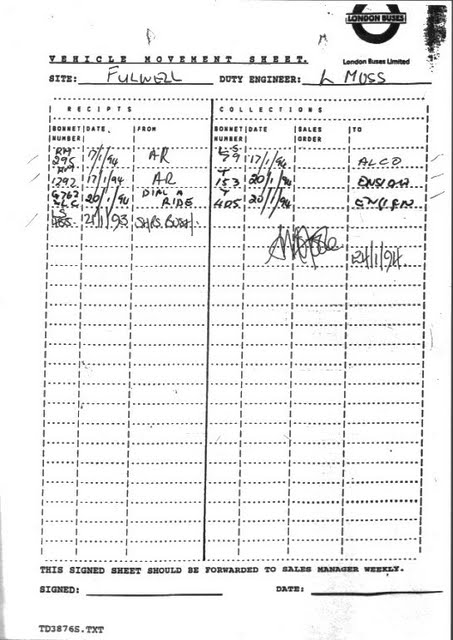 LONDON BUSES
VEHICLE MOVEMENT SHEET.
London Buses Limited
SITE: FULWELL DUTY ENGINEER: L MOSS
RECEIPTS COLLECTIONS
BONNET NUMBER DATE FROM BONNET NUMBER DATE SALES ORDER TO
RM 295 17/1/94 AR LS 79 17/1/94 ALCO
RM 792 17/1/94 AR T 153 20/1/94 ENSIGN
20/1/94 DIAL A RIDE T 405 20/1/94 ENSIGN
LS 21/1/93 SHPS. BUSH.
24/1/94
THIS SIGNED SHEET SHOULD BE FORWARDED TO SALES MANAGER WEEKLY.
SIGNED: DATE:
TD3876S.TXT